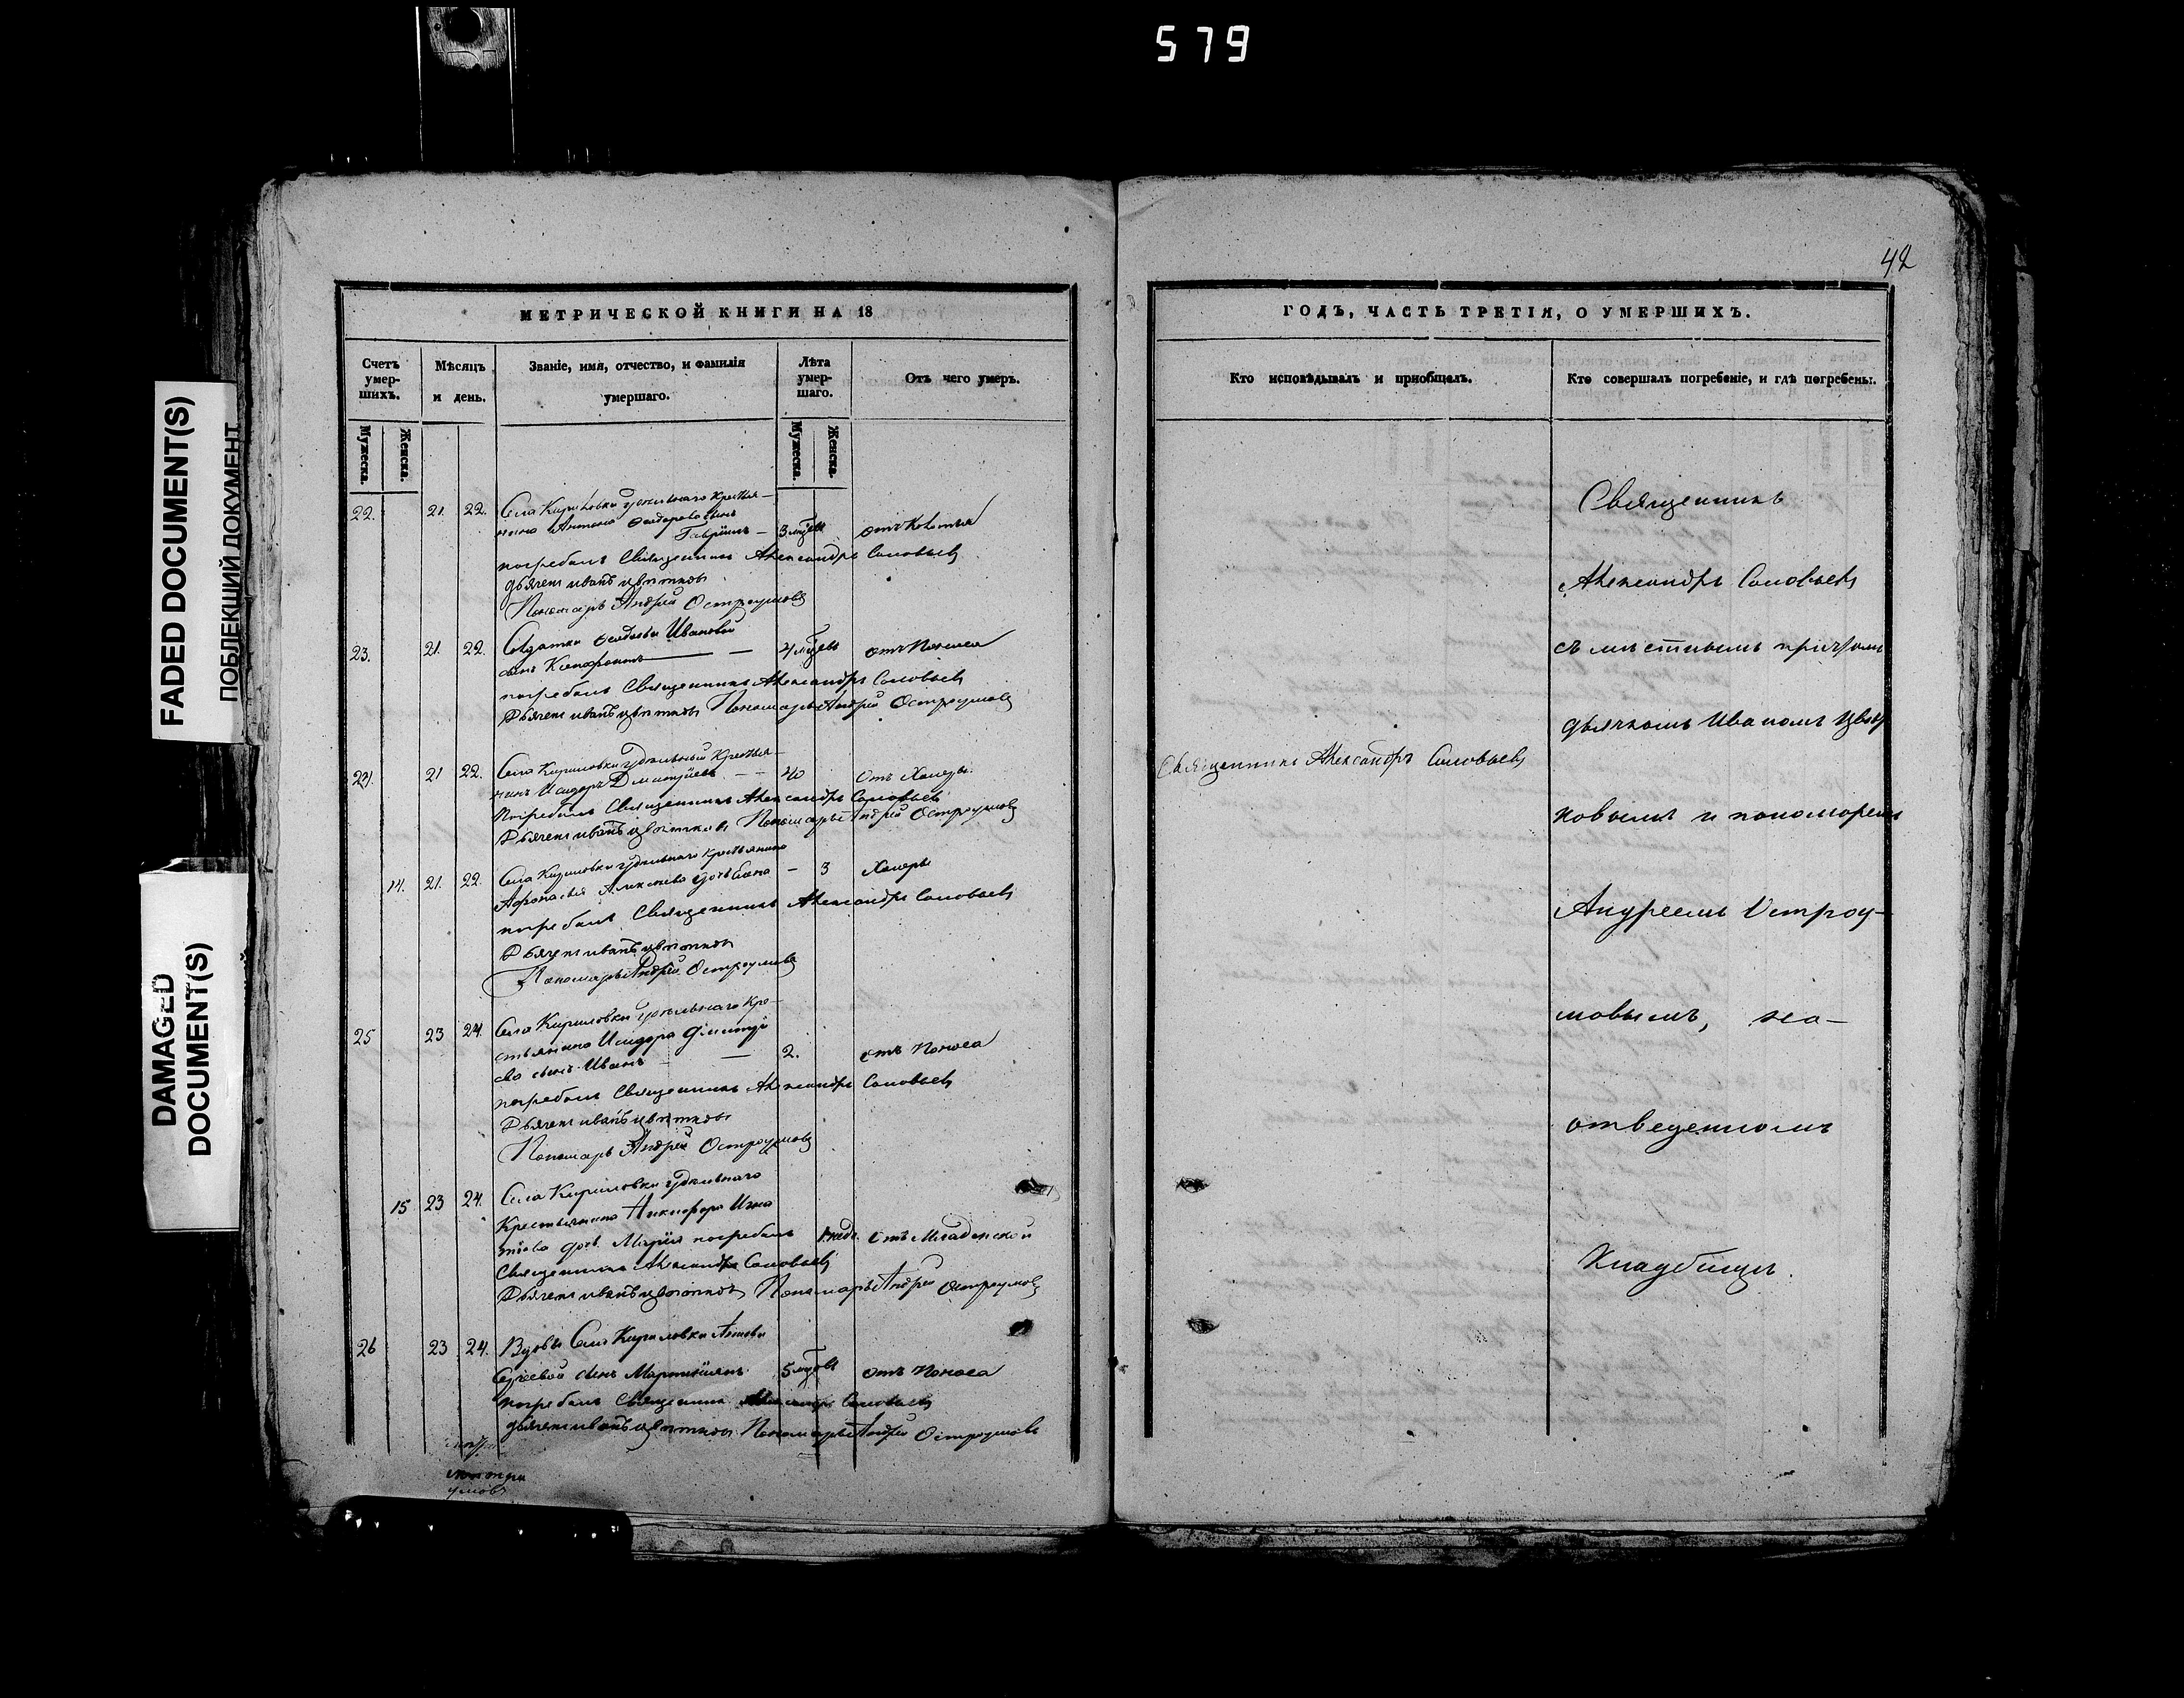 579
FADED DOCUMENT(S)
ПОБЛЕКШИЙ ДОКУМЕНТ
DAMAGED
DOCUMENT(S)
МЕТРИЧЕСКОЙ КНИГИ НА 18
Счетъ умер-шихъ.
Мѣсяцъ и день.
Званіе, имя, отчество, и фамилія умершаго.
Лѣта умер-шаго.
Отъ чего умеръ.
Мужеска.
Женска.
Мужеска.
Женска.
22. 21. 22. Села Кириловки удѣльнаго крестья-
нина Антона Ѳедорова сынъ
Гавріилъ — 3 мѣ
погребалъ Священникъ Александръ Соловьевъ
дьячекъ иванъ цвѣтковъ
Пономарь Андрей Остроумовъ
23. 21. 22. Солдатки Ивановой
сынъ — 4 отъ Поноса
погребалъ Священникъ Александръ Соловьевъ
Дьячекъ иванъ цвѣтковъ Пономарь Андрей Остроумовъ
24. 21 22. Села Кириловки удѣльный Крестья-
нинъ Исидоръ Дмитріевъ — — 40 Отъ Холеры.
Погребалъ Священникъ Александръ Соловьевъ
Дьячекъ иванъ цвѣтковъ Пономарь Андрей Остроумовъ
14. 21. 22. Села Кириловки удѣльнаго крестьянина
Алексѣева дочь — 3 Холеры
погребалъ Священникъ Александръ Соловьевъ
Дьячекъ иванъ цвѣтковъ
Пономарь Андрей Остроумовъ
25 23 24. Села Кириловки удѣльнаго Кре-
стьянина Исидора Дмитріе
ва сынъ Иванъ — 2. отъ Поноса
погребалъ Священникъ Александръ Соловьевъ
Дьячекъ иванъ цвѣтковъ
Пономарь Андрей Остроумовъ
15 23 24. Села Кириловки удѣльнаго
Крестьянина Никифора Игна
тіева дочь Марія погребалъ 1 недѣ. отъ Младенской
Священникъ Александръ Соловьевъ
Дьячекъ иванъ цвѣтковъ Пономарь Андрей Остроумовъ
26 23 24. Вдовы Села Кириловки
сынъ 5 отъ Поноса
погребалъ Священникъ Александръ Соловьевъ
дьячекъ иванъ цвѣтковъ Пономарь Андрей Остроумовъ
42
ГОДЪ, ЧАСТЬ ТРЕТІЯ, О УМЕРШИХЪ.
Кто исповѣдывалъ и пріобщалъ.
Кто совершалъ погребеніе, и гдѣ погребены.
Священникъ Александръ Соловьевъ
Священникъ
Александръ Соловьевъ
съ мѣстнымъ причтомъ
дьячкомъ Иваномъ Цвѣт
ковымъ и пономаремъ
Андреемъ Остроу-
мовымъ, на-
отведенномъ
Кладбищѣ.